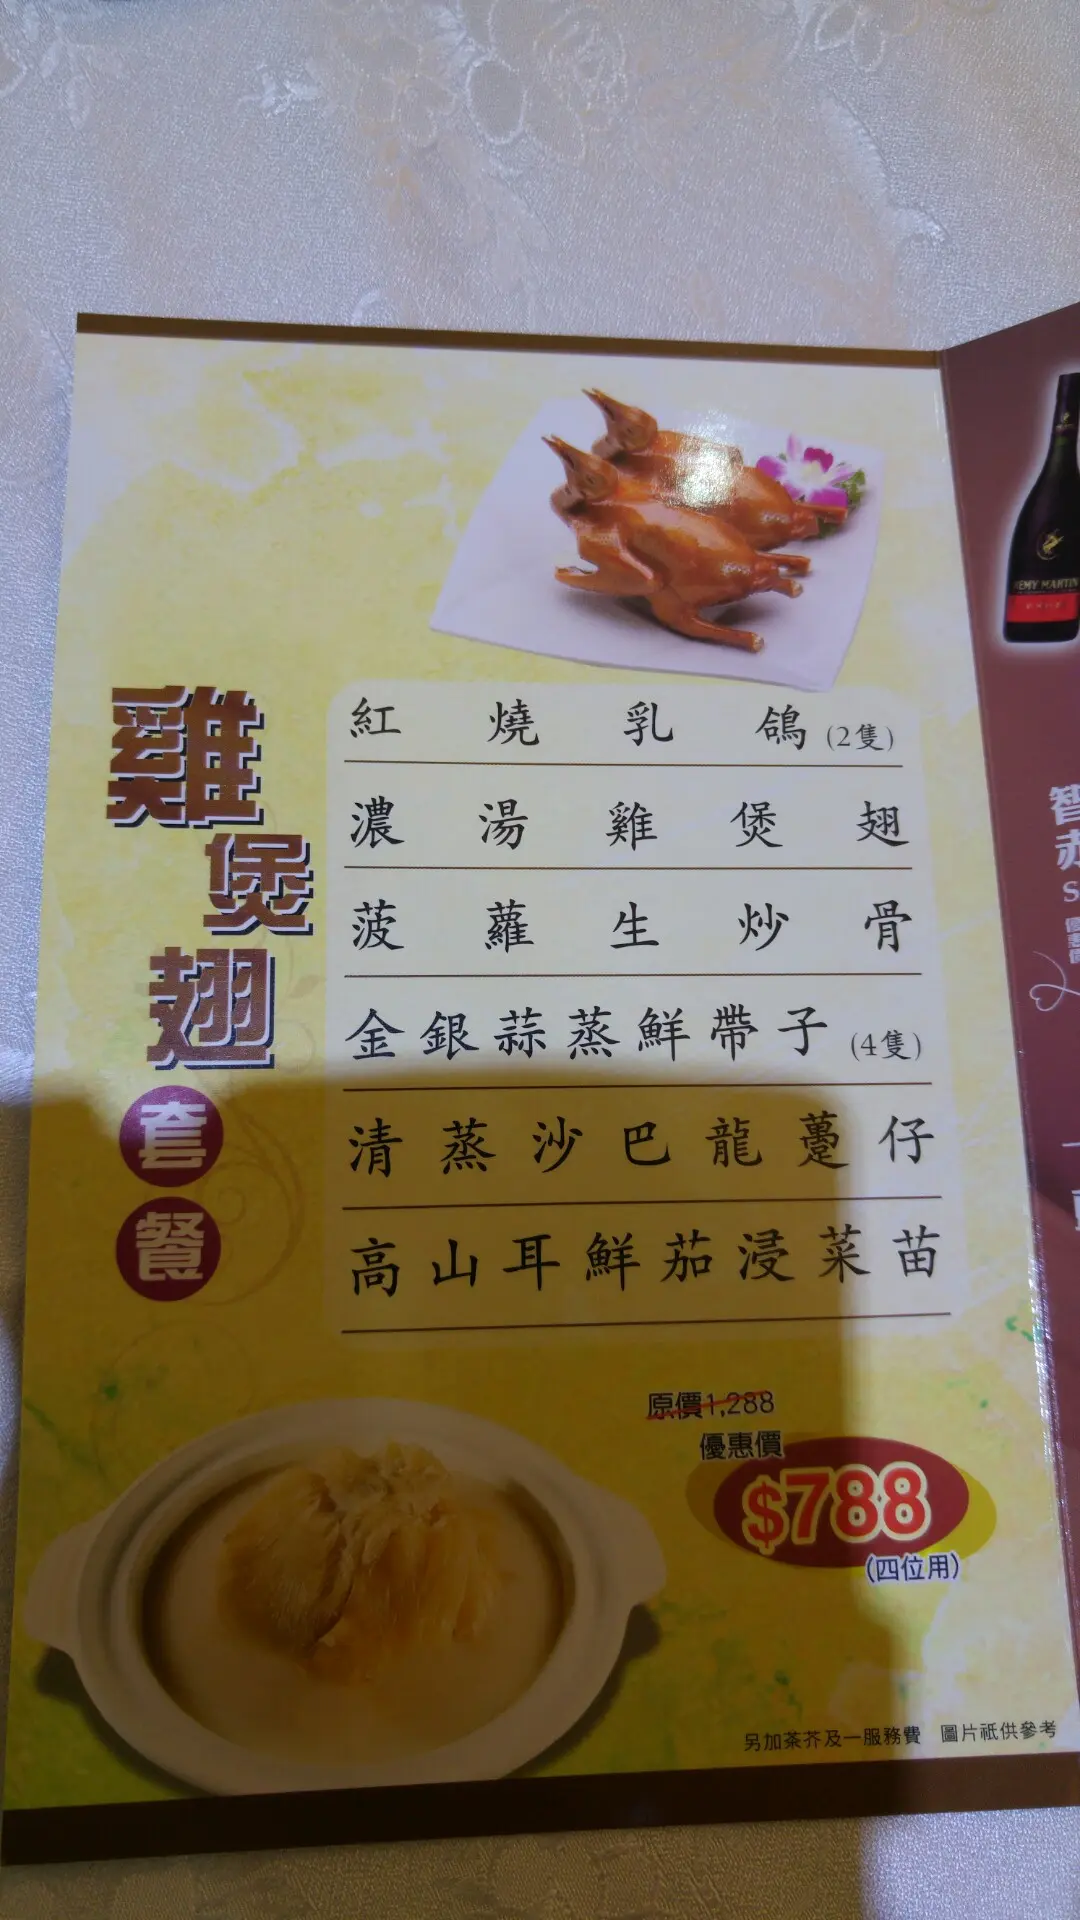 雞煲翅
套餐
紅燒乳鴿(2隻)
濃湯雞煲翅
菠蘿生炒骨
金銀蒜蒸鮮帶子(4隻)
清蒸沙巴龍躉仔
高山耳鮮茄浸菜苗
原價1,288
優惠價
$788
(四位用)
另加茶芥及一服務費 圖片祇供參考
REMY MARTIN